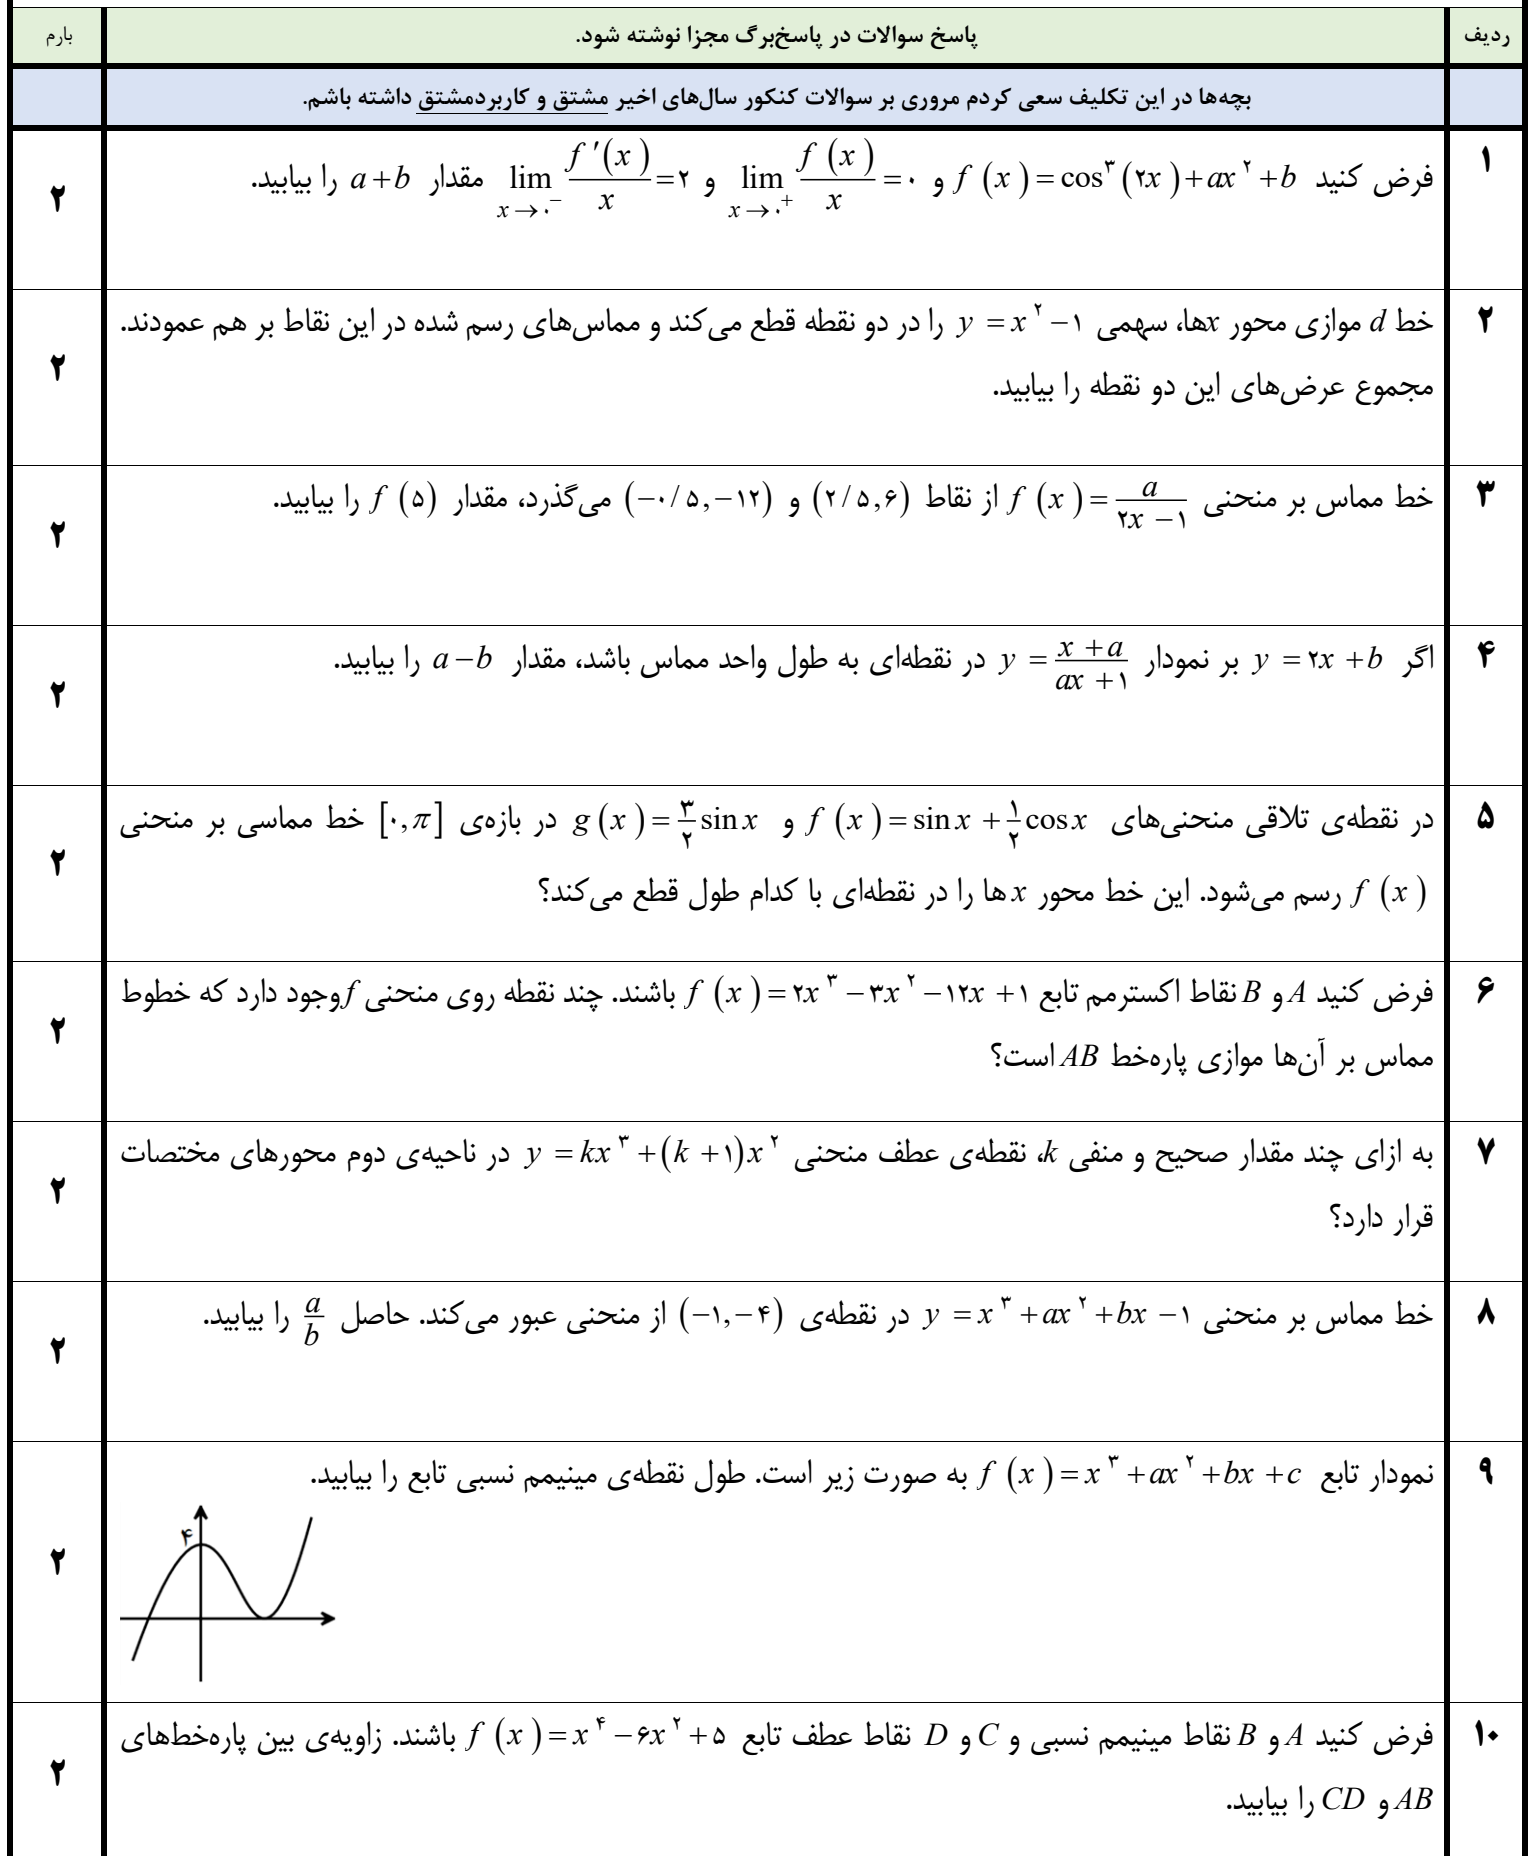 ردیف پاسخ سوالات در پاسخ‌برگ مجزا نوشته شود. بارم
بچه‌ها در این تکلیف سعی کردم مروری بر سوالات کنکور سال‌های اخیر مشتق و کاربردمشتق داشته باشم.
۱ فرض کنید f(x)=cos^۳(۲x)+ax^۲+b و lim x→۰⁺ f(x)/x=۰ و lim x→۰⁻ f'(x)/x=۲ مقدار a+b را بیابید. ۲
۲ خط d موازی محور xها، سهمی y=x^۲−۱ را در دو نقطه قطع می‌کند و مماس‌های رسم شده در این نقاط بر هم عمودند. ۲
مجموع عرض‌های این دو نقطه را بیابید.
۳ خط مماس بر منحنی f(x)=a/(۲x−۱) از نقاط (۲/۵,۶) و (−۰/۵,−۱۲) می‌گذرد، مقدار f(۵) را بیابید. ۲
۴ اگر y=۲x+b بر نمودار y=(x+a)/(ax+۱) در نقطه‌ای به طول واحد مماس باشد، مقدار a−b را بیابید. ۲
۵ در نقطه‌ی تلاقی منحنی‌های f(x)=sinx+۱/۲cosx و g(x)=۳/۲sinx در بازه‌ی [۰,π] خط مماسی بر منحنی ۲
f(x) رسم می‌شود. این خط محور xها را در نقطه‌ای با کدام طول قطع می‌کند؟
۶ فرض کنید A و B نقاط اکسترمم تابع f(x)=۲x^۳−۳x^۲−۱۲x+۱ باشند. چند نقطه روی منحنی f وجود دارد که خطوط ۲
مماس بر آن‌ها موازی پاره‌خط AB است؟
۷ به ازای چند مقدار صحیح و منفی k، نقطه‌ی عطف منحنی y=kx^۳+(k+۱)x^۲ در ناحیه‌ی دوم محورهای مختصات ۲
قرار دارد؟
۸ خط مماس بر منحنی y=x^۳+ax^۲+bx−۱ در نقطه‌ی (−۱,−۴) از منحنی عبور می‌کند. حاصل a/b را بیابید. ۲
۹ نمودار تابع f(x)=x^۳+ax^۲+bx+c به صورت زیر است. طول نقطه‌ی مینیمم نسبی تابع را بیابید. ۲
۴
۱۰ فرض کنید A و B نقاط مینیمم نسبی و C و D نقاط عطف تابع f(x)=x^۴−۶x^۲+۵ باشند. زاویه‌ی بین پاره‌خط‌های ۲
AB و CD را بیابید.